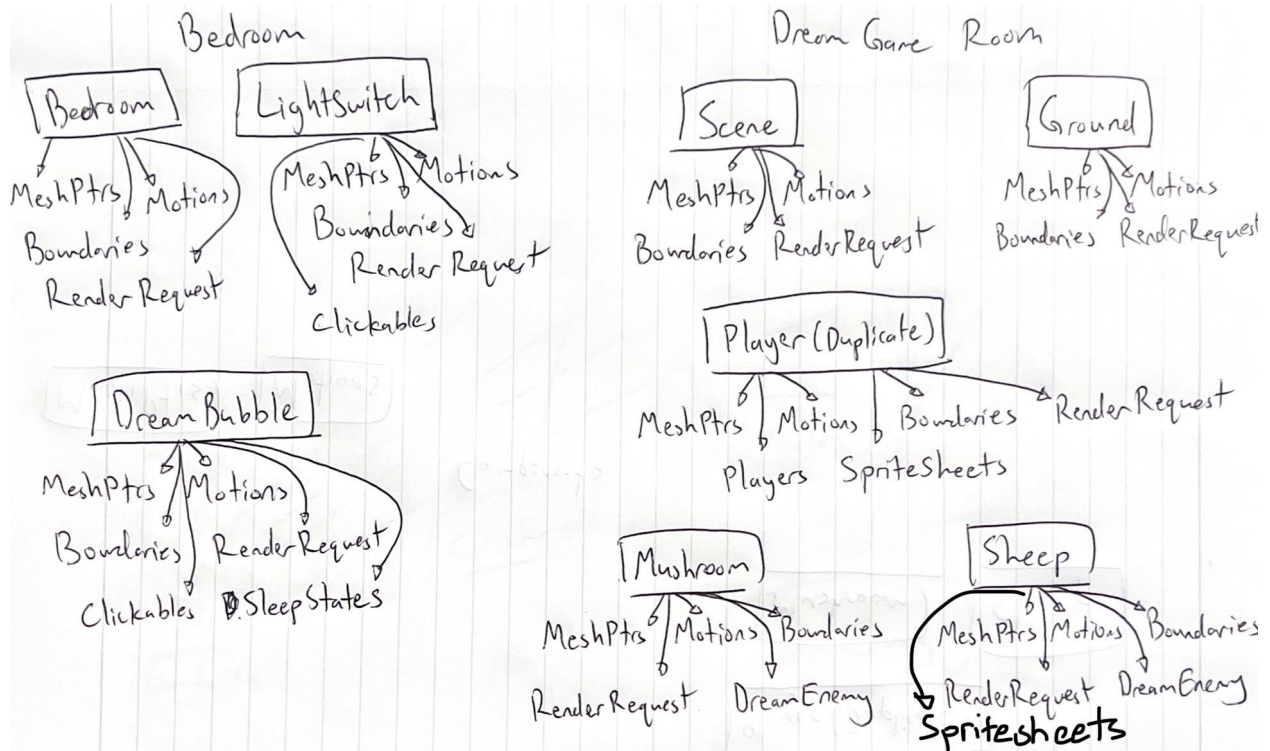 Bedroom
Bedroom
MeshPtrs
Motions
Boundaries
Render Request
LightSwitch
MeshPtrs
Motions
Boundaries
Render Request
Clickables
DreamBubble
MeshPtrs
Motions
Boundaries
RenderRequest
Clickables
SleepStates
Dream Game Room
Scene
MeshPtrs
Motions
Boundaries
RenderRequest
Ground
MeshPtrs
Motions
Boundaries
RenderRequest
Player (Duplicate)
MeshPtrs
Motions
Boundaries
RenderRequest
Players
SpriteSheets
Mushroom
MeshPtrs
Motions
Boundaries
RenderRequest
DreamEnemy
Sheep
MeshPtrs
Motions
Boundaries
RenderRequest
DreamEnemy
Spritesheets